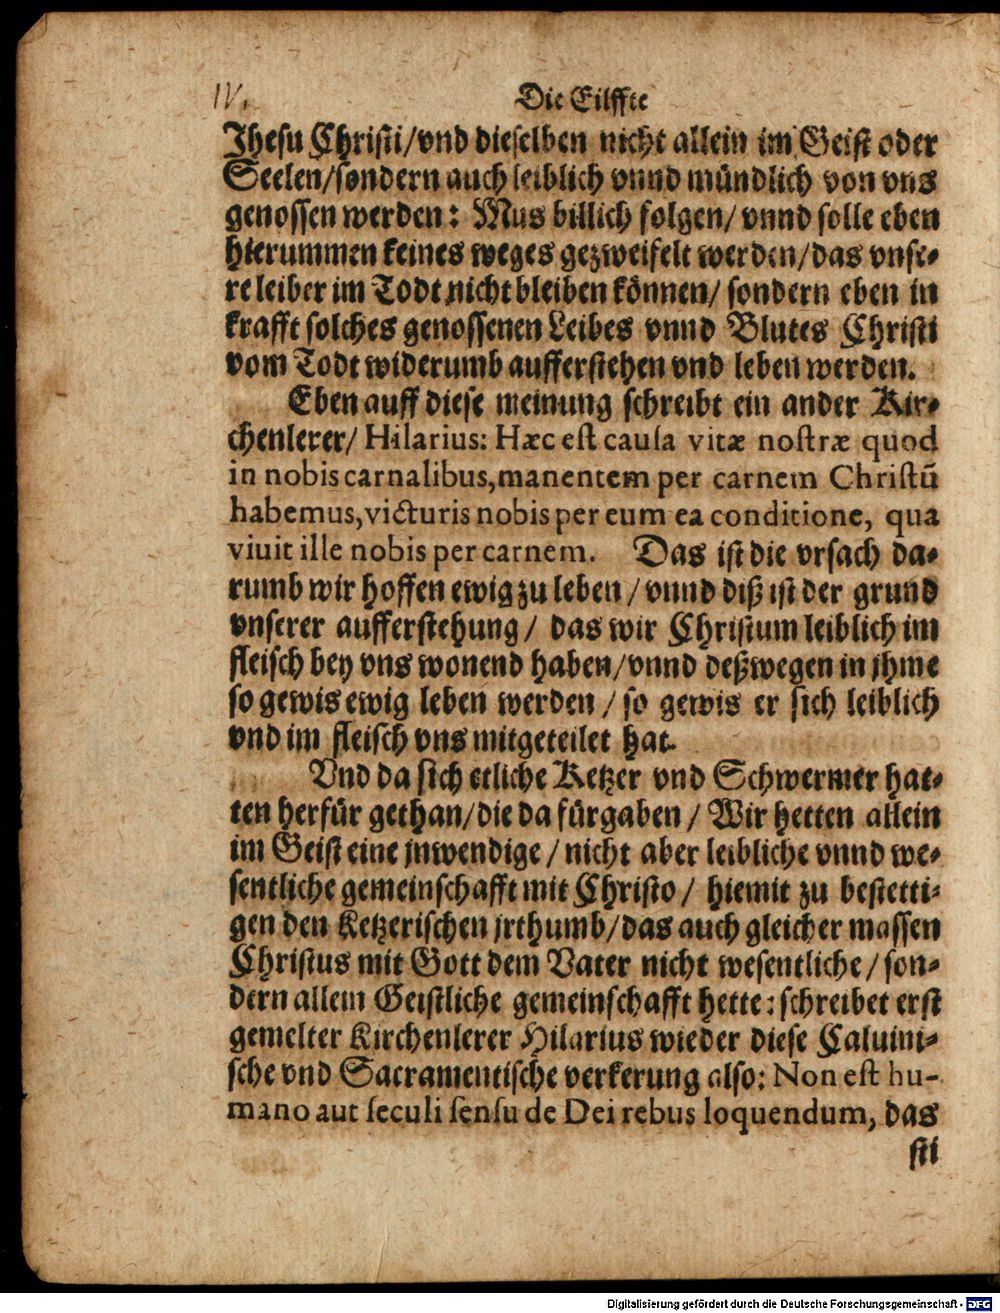 IV.
Die Eilffte
Jhesu Christi/vnd dieselben nicht allein im Geist oder
Seelen/sondern auch leiblich vnnd mündlich von vns
genossen werden: Mus billich folgen/ vnnd solle eben
hierummen keines weges gezweifelt werden/das vnse⸗
re leiber im Todt nicht bleiben können/ sondern eben in
krafft solches genossenen Leibes vnnd Blutes Christi
vom Todt widerumb aufferstehen vnd leben werden.
Eben auff diese meinung schreibt ein ander Kir⸗
chenlerer/ Hilarius: Hæc est causa vitæ nostræ quod
in nobis carnalibus, manentem per carnem Christū
habemus, victuris nobis per eum ea conditione, qua
viuit ille nobis per carnem. Das ist die vrsach da⸗
rumb wir hoffen ewig zu leben / vnnd diß ist der grund
vnserer aufferstehung / das wir Christum leiblich im
fleisch bey vns wonend haben/vnnd deßwegen in jhme
so gewis ewig leben werden / so gewis er sich leiblich
vnd im fleisch vns mitgeteilet hat.
Vnd da sich etliche Ketzer vnd Schwermer hat⸗
ten herfür gethan/die da fürgaben / Wir hetten allein
im Geist eine jnwendige / nicht aber leibliche vnnd we⸗
sentliche gemeinschafft mit Christo / hiemit zu bestetti⸗
gen den Ketzerischen jrthumb/das auch gleicher massen
Christus mit Gott dem Vater nicht wesentliche / son⸗
dern allein Geistliche gemeinschafft hette: schreibet erst
gemelter Kirchenlerer Hilarius wieder diese Caluini⸗
sche vnd Sacramentische verkerung also: Non est hu-
mano aut seculi sensu de Dei rebus loquendum, das
sti
Digitalisierung gefördert durch die Deutsche Forschungsgemeinschaft - DFG